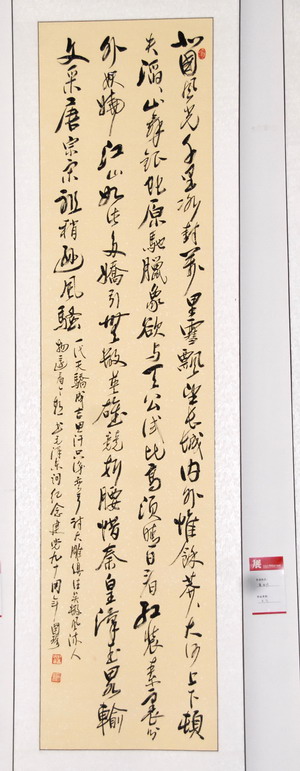 北國风光千里冰封萬里雪飄望长城内外惟餘莽、大河上下頓
失滔、山舞銀蛇原馳臘象欲与天公试比高须晴日看红装素裹分
外妖娆江山如此多嬌引無数英雄競折腰惜秦皇漢武畧輸
文采唐宗宋祖稍逊風騷
一代天驕成吉思汗只识弯弓射大雕俱往矣数風流人
物还看今朝 书毛泽东词纪念建党九十周年
展